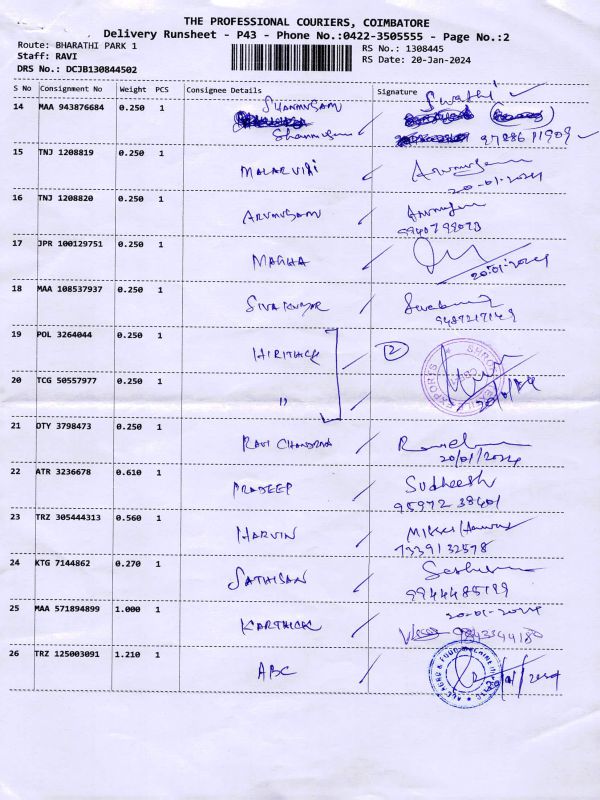 THE PROFESSIONAL COURIERS, COIMBATORE
Delivery Runsheet - P43 - Phone No.:0422-3505555 - Page No.:2
Route: BHARATHI PARK 1
RS No.: 1308445
Staff: RAVI
RS Date: 20-Jan-2024
DRS No.: DCJB130844502
S No Consignment No Weight PCS Consignee Details Signature
14 MAA 943876684 0.250 1 SHANMUGAM Swathi
Shanmugam
15 TNJ 1208819 0.250 1 MALARVIRI
20-01-2024
16 TNJ 1208820 0.250 1 ARUMUGAM
17 JPR 100129751 0.250 1 MAGHA
20/01/2024
18 MAA 108537937 0.250 1 SIVAKUMAR
19 POL 3264044 0.250 1 HIRITHICK 2
20 TCG 50557977 0.250 1 "
21 DTY 3798473 0.250 1 RAVI CHANDRAN
20/01/2024
22 ATR 3236678 0.610 1 PRADEEP Sudheesh
95972 38401
23 TRZ 305444313 0.560 1 HARVIN
7339132578
24 KTG 7144862 0.270 1 SATHISAN
9944485199
25 MAA 571894899 1.000 1 KARTHICK 20-01-2024
9843344180
26 TRZ 125003091 1.210 1 ABC